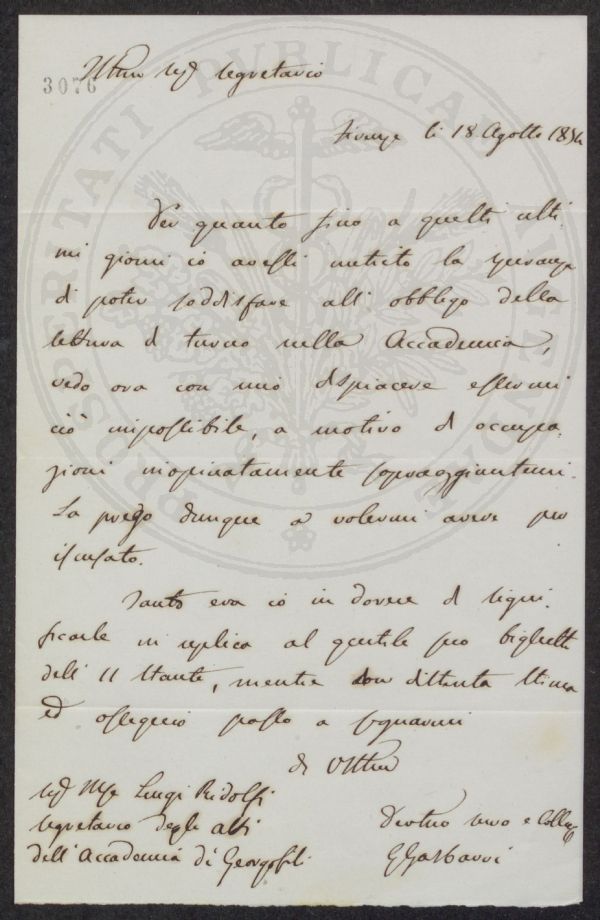 3076
Illmo Sigr Segretario
Firenze li 18 Agosto 1854
Per quanto fino a questi ulti-
mi giorni io avessi nutrito la speranza
di poter soddisfare all' obbligo della
lettura di turno nella Accademia,
vedo ora con mio dispiacere essermi
ciò impossibile, a motivo di occupa-
zioni inopinatamente sopraggiuntemi.
La prego dunque a volermi avere per
iscusato.
Tanto era io in dovere di signi-
ficarle in replica al gentile suo biglietto
dell' 11 stante, mentre con distinta stima
ed ossequio passo a segnarmi
di VS Illma
Sigr Mse Luigi Ridolfi
Segretario degli atti
dell' Accademia di Georgofili
Devotmo servo e Collega
PROSPERITATI PUBLICAE AUGENDAE